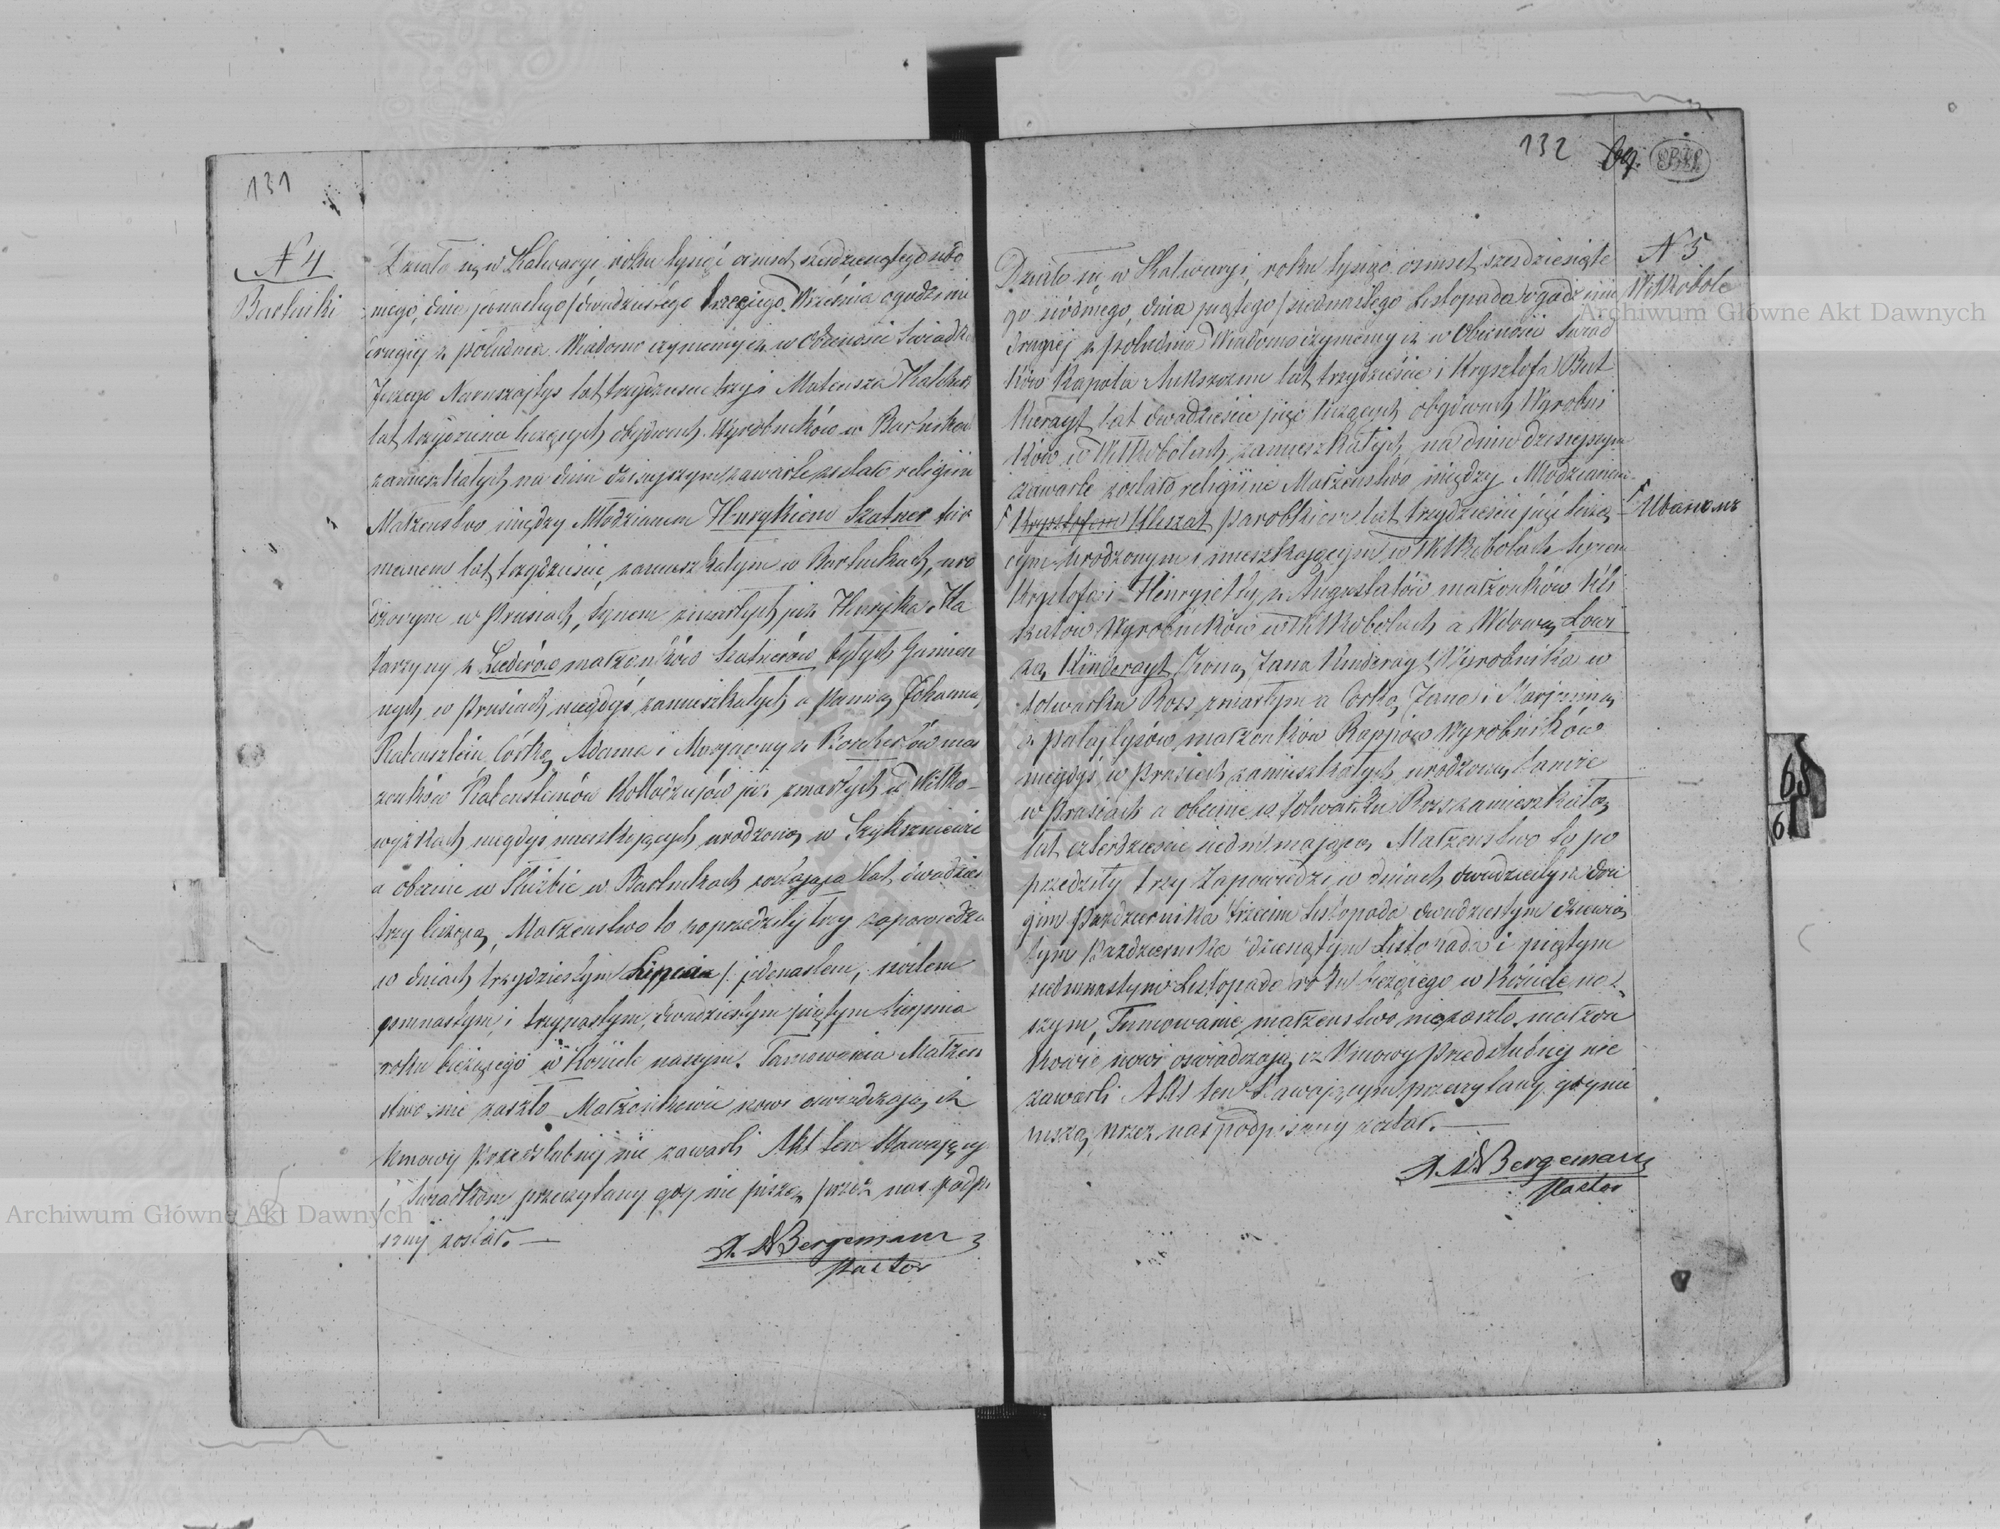 131
N 4
Bartniki
Działo się w Kalwaryi roku tysiąc ośmset sześdziesiątego siód
mego, dnia jedenastego / dwudziestego trzeciego Września o godzinie
drugiej z południa. Wiadomo czynimy iż w Obecności Świadków
Jerzego lat trzydzieście trzy i Mateusza
lat trzydzieście liczących obydwóch Wyrobników w Bartnikach
zamieszkałych na dniu dzisiejszym zawarte zostało religijne
Małżeństwo między Młodzianem Henrykiem Szatner
lat trzydzieście, zamieszkałym w Bartnikach, uro
dzonym w Prusiach, synem zmarłych już Henryka i Ka
tarzyny z małżonków Szatnerów byłych
nych w Prusiach niegdyś zamieszkałych a Panną Johanną
Ratensztein Córką Adama i Maryanny z mał
żonków już zmarłych w Wiłko-
wyszkach niegdyś mieszkających urodzoną w
a obecnie w Służbie w Bartnikach zostającą lat dwadzieścia
trzy liczącą, Małżeństwo to poprzedziły trzy zapowiedzi
w dniach trzydziestym Lipcia / jedenastem, szóstem
ośmnastym, i trzynastym, dwudziestym piątym Sierpnia
roku bieżącego w Kościele naszym. Tamowania Małżeń
stwo nie zaszło Małżonkowie nowi oświadczają iż
Umowy Przedślubnéj nie zawarli Akt ten Stawającym
i Świadkom przeczytany gdy nie piszą przez nas podpi
sany został. —
Bergemann
Pastor
132
N 5
Wiłkobole
Działo się w Kalwaryi, roku tysiąc ośmset sześdziesiąte
go siódmego, dnia piątego / siedmnastego Listopada o godzinie
drugiej z południa Wiadomo czynimy iż w Obecności Świad
ków Karola lat trzydzieście i Krysztofa But
kierayt lat dwadzieście pięć liczących obydwóch Wyrobni
ków w Wiłkobolach zamieszkałych, na dniu dzisiejszym
zawarte zostało religijne Małżeństwo między Młodzianem
Krysztofem Uleszat parobkiem lat trzydzieście pięć liczą
Иваномъ
cym urodzonym i mieszkającym w Wiłkobolach synem
Krysztofa i Henryietty z Augustatów małżonków Ule
szatów Wyrobników w Wiłkobolach a Wdową Lowi
zą Kinderayt Żoną Jana Kinderayt Wyrobnika w
folwarku Ross zmarłym a Córką Jana i Maryanny
z małżonków Rappiów Wyrobników
niegdyś w Prusiech zamieszkałych urodzoną tamże
w Prusiach a obecnie w folwarku Ross zamieszkałą
lat czterdzieście siedm mającą Małżeństwo to po
przedziły trzy Zapowiedzi w dniach dwudziestym dru
gim Października trzecim Listopada dwudziestym dziewią
tym Października dziesiątym Listopada i piątym
siedmnastym Listopada roku bieżącego w Kościele na
szym, Tamowanie małżeństwo niezaszło. małżon
kowie nowi oświadczają iż Umowy Przedślubnéj nie
zawarli Akt ten Stawającym przeczytany, gdy nie
piszą przez nas podpisany został. —
Bergemann
Pastor
Archiwum Główne Akt Dawnych
Archiwum Główne Akt Dawnych